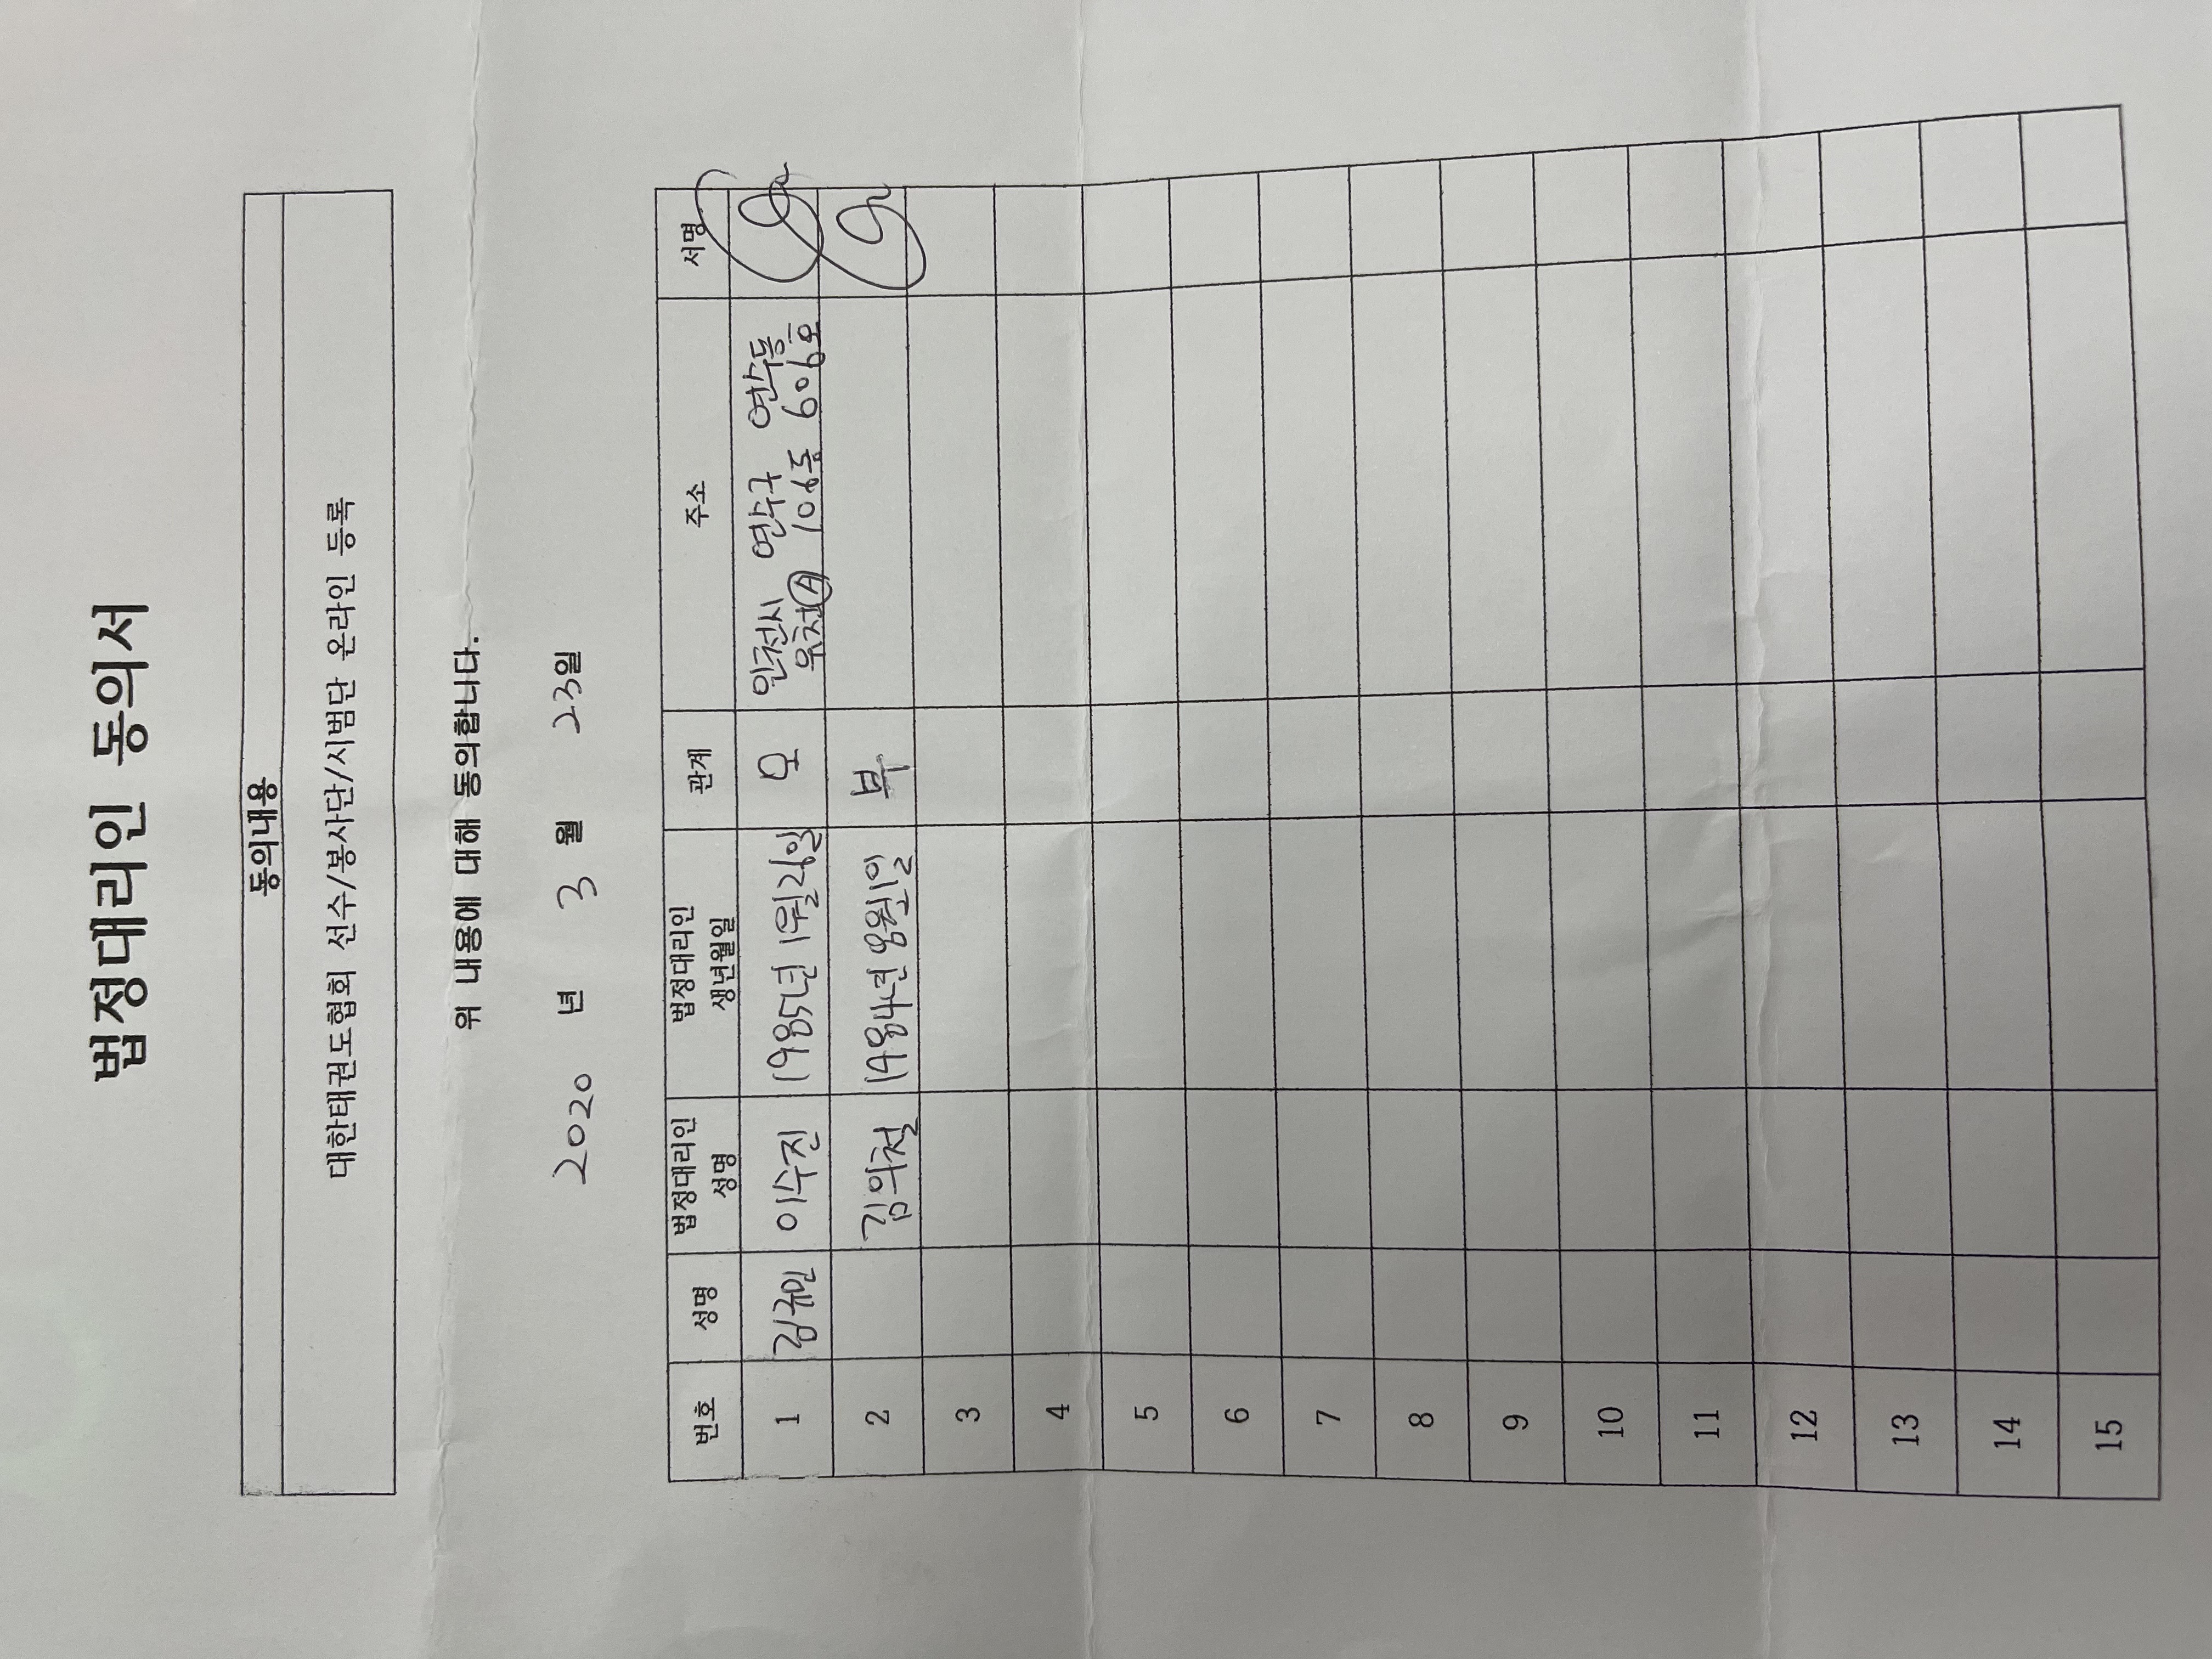 법정대리인 동의서
동의내용
대한태권도협회 선수/봉사단/시범단 온라인 등록
위 내용에 대해 동의합니다.
2020 년 3 월 23일
번호 성명 법정대리인 성명 법정대리인 생년월일 관계 주소 서명
1 김규민 이수진 1985년 1월26일 모 인천시 연수구 연수동
우천Ⓐ 106동 606호
2 김의철 1984년 8월1일 부
3
4
5
6
7
8
9
10
11
12
13
14
15